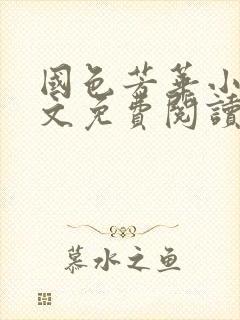 國色芳華小
文免費閱讀
慕水之鱼